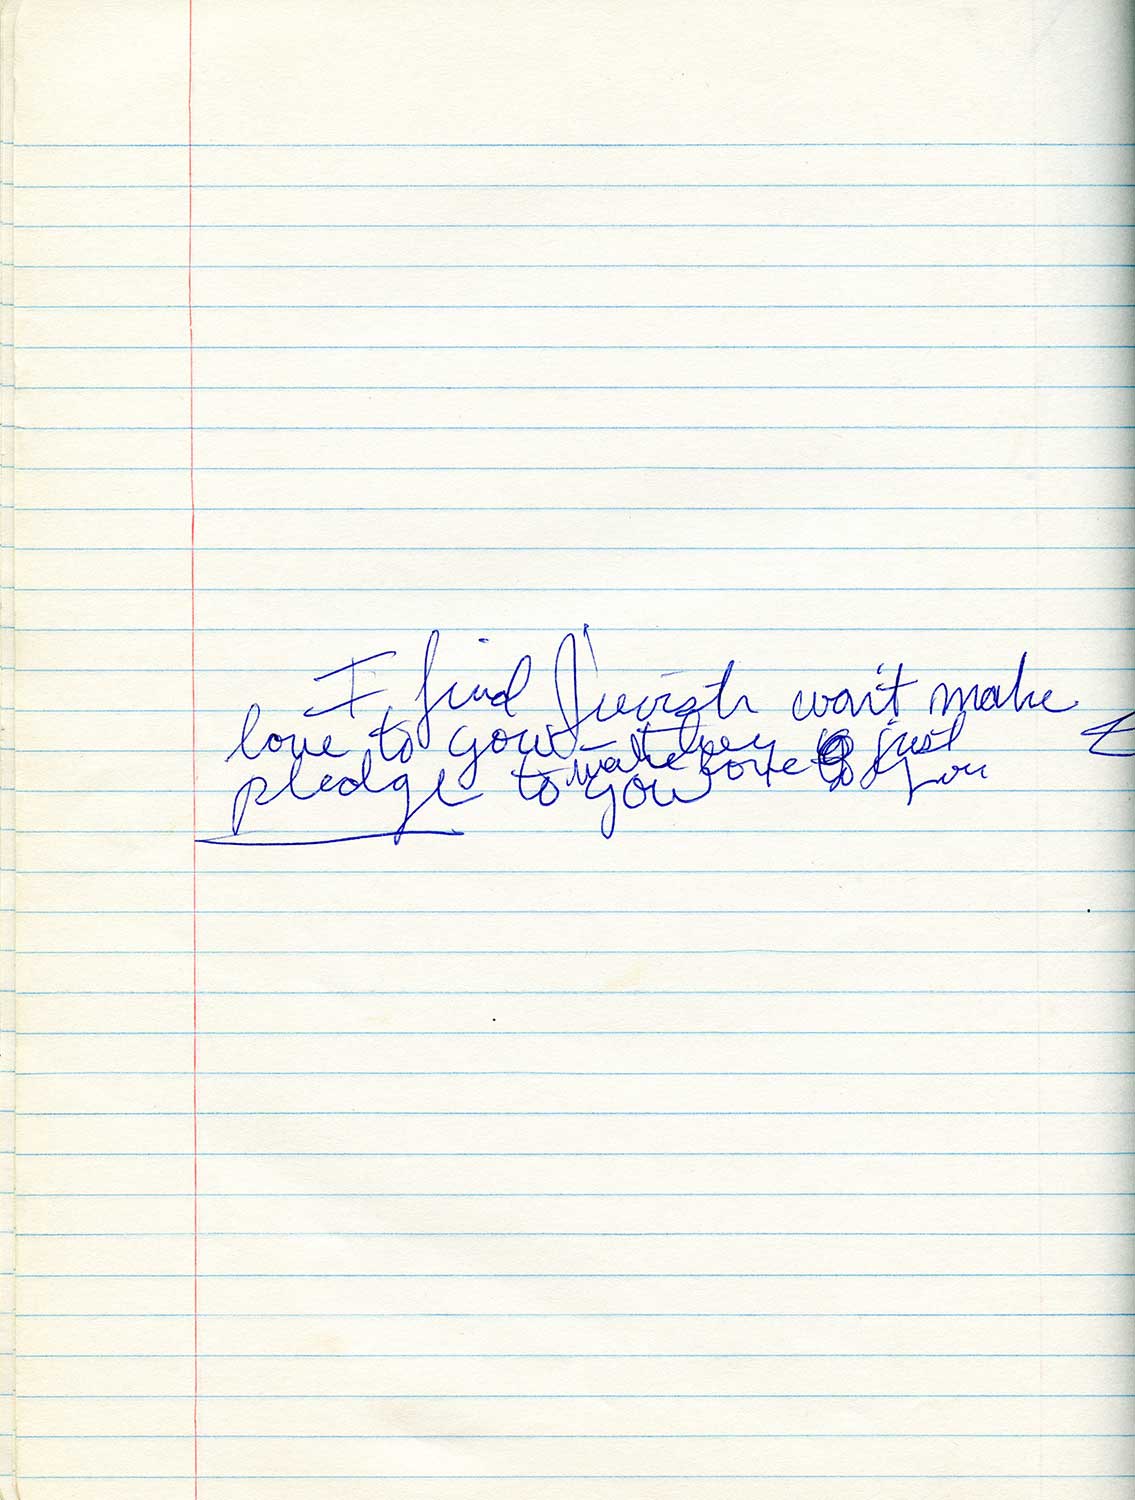 I find Jewish won't make
love to you – they just
pledge to make love to you
you